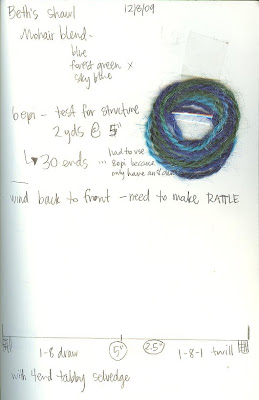 Beth's shawl 12/8/09
Mohair blend-
blue
forest green x
sky blue
6epi - test for structure
2 yds @ 5"
30 ends ... had to use
8epi because
only have an 8 dent
wind back to front - need to make RATTLE
1-8 draw 5" 2.5" 1-8-1 twill
with 4end tabby selvedge